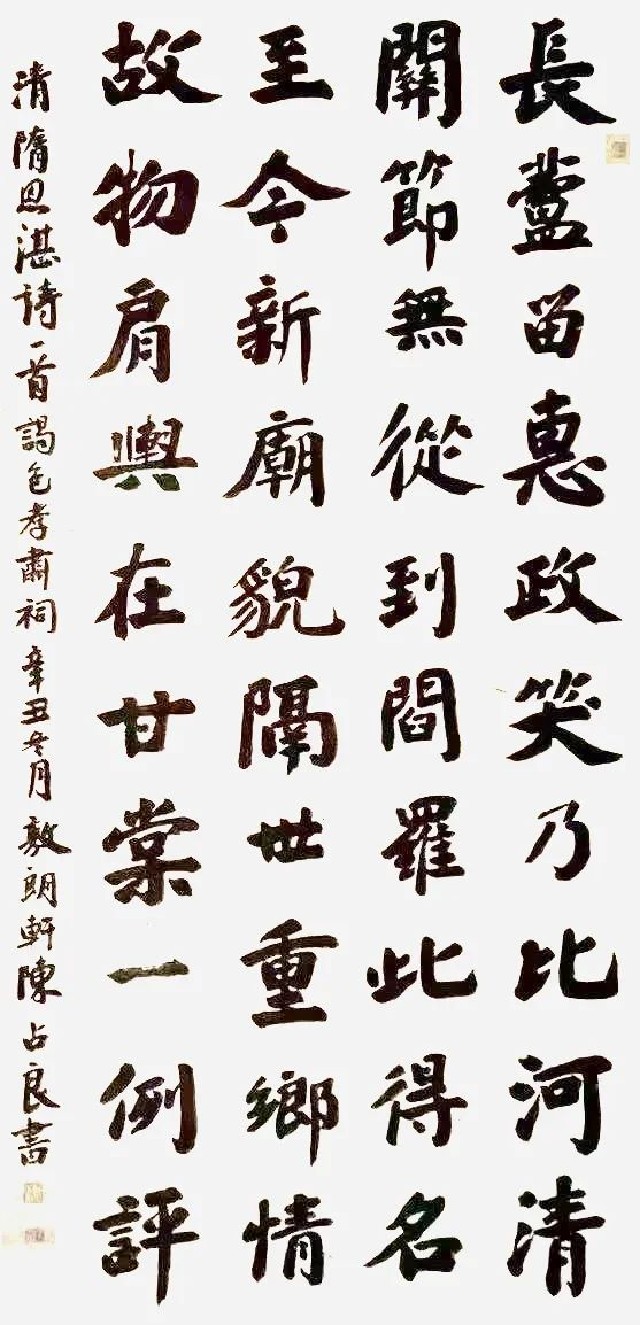 長蘆留惠政笑乃比河清
關節無從到閻羅此得名
至今新廟貌隔世重鄉情
故物肩輿在甘棠一例評
清隋恩湛詩一首謁包孝肅祠辛丑冬月敦朗軒陳占良書